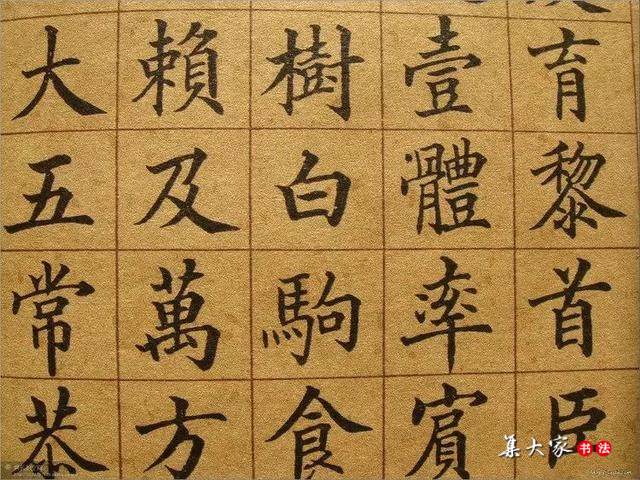 育黎首臣
壹體率賓
樹白駒食
賴及萬方
大五常恭
集大家 书法